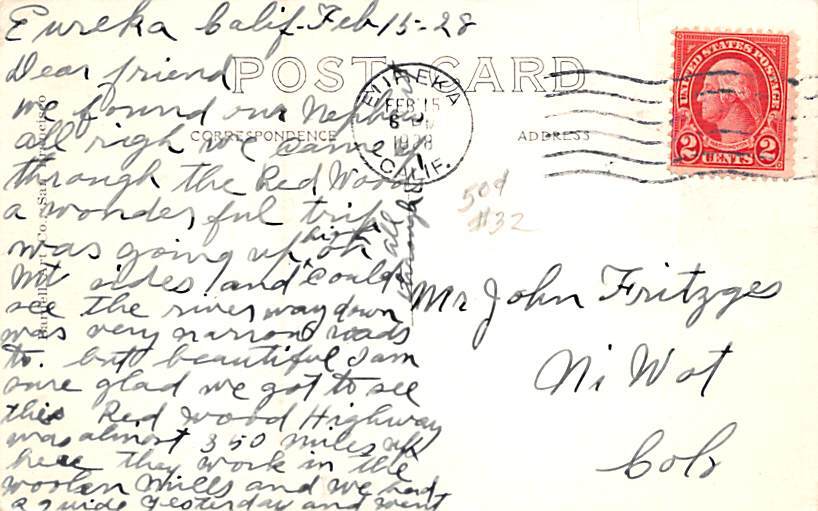 Eureka Calif. Feb 15-28
Dear friend
we found our Nephew
all righ we came
through the Red Woods
a wonderful trip
was going up high on
Mt sides and could
see the river way down
was very narrow roads
to. but beautiful I am
sure glad we got to see
this Red Wood Highway
was almost 350 miles up
here they work in the
woolen Mills and we had
a guide yesterday and went
all through
POST CARD
CORRESPONDENCE
ADDRESS
EUREKA
FEB 15
1928
CALIF.
UNITED STATES POSTAGE
2 CENTS 2
50¢
#32
Mr John Fritzges
Ni Wot
Colo
Co., San Francisco